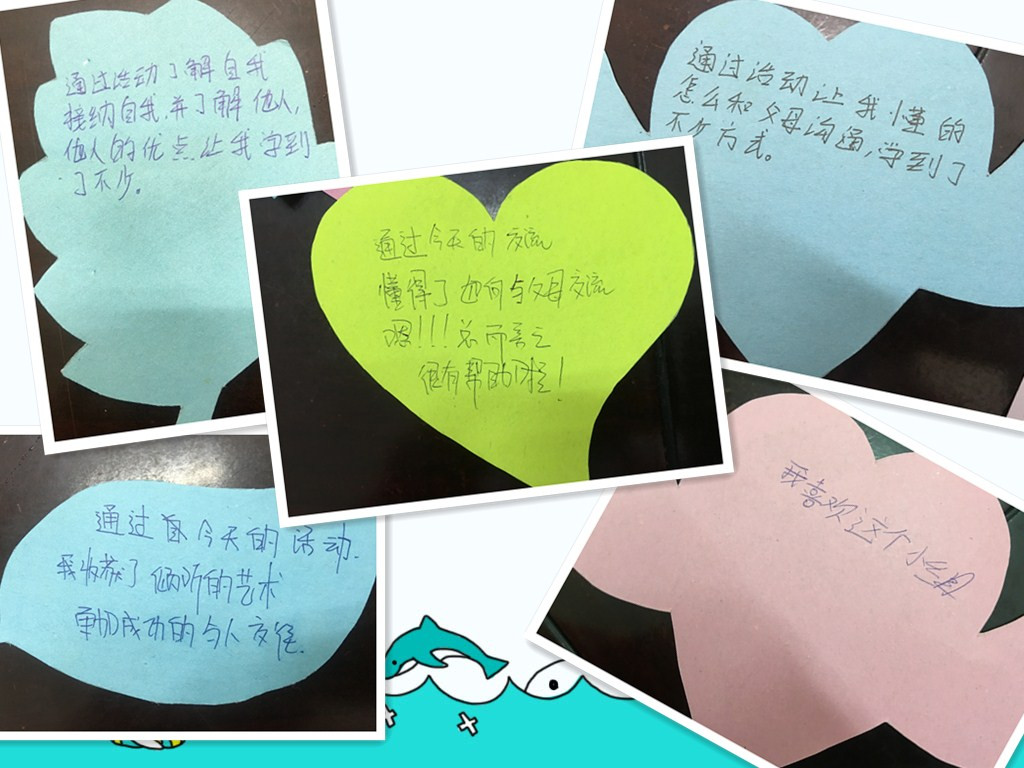 通过活动了解自我
接纳自我.并了解他人,
他人的优点.让我学到
了不少。
通过活动让我懂的
怎么和父母沟通,学到了
不少方式。
通过今天的交流
懂得了如何与父母交流
嗯!!!总而言之
很有帮助!
通过今天的活动.
我收获了倾听的艺术
更加成功的与人交往.
我喜欢这个小组